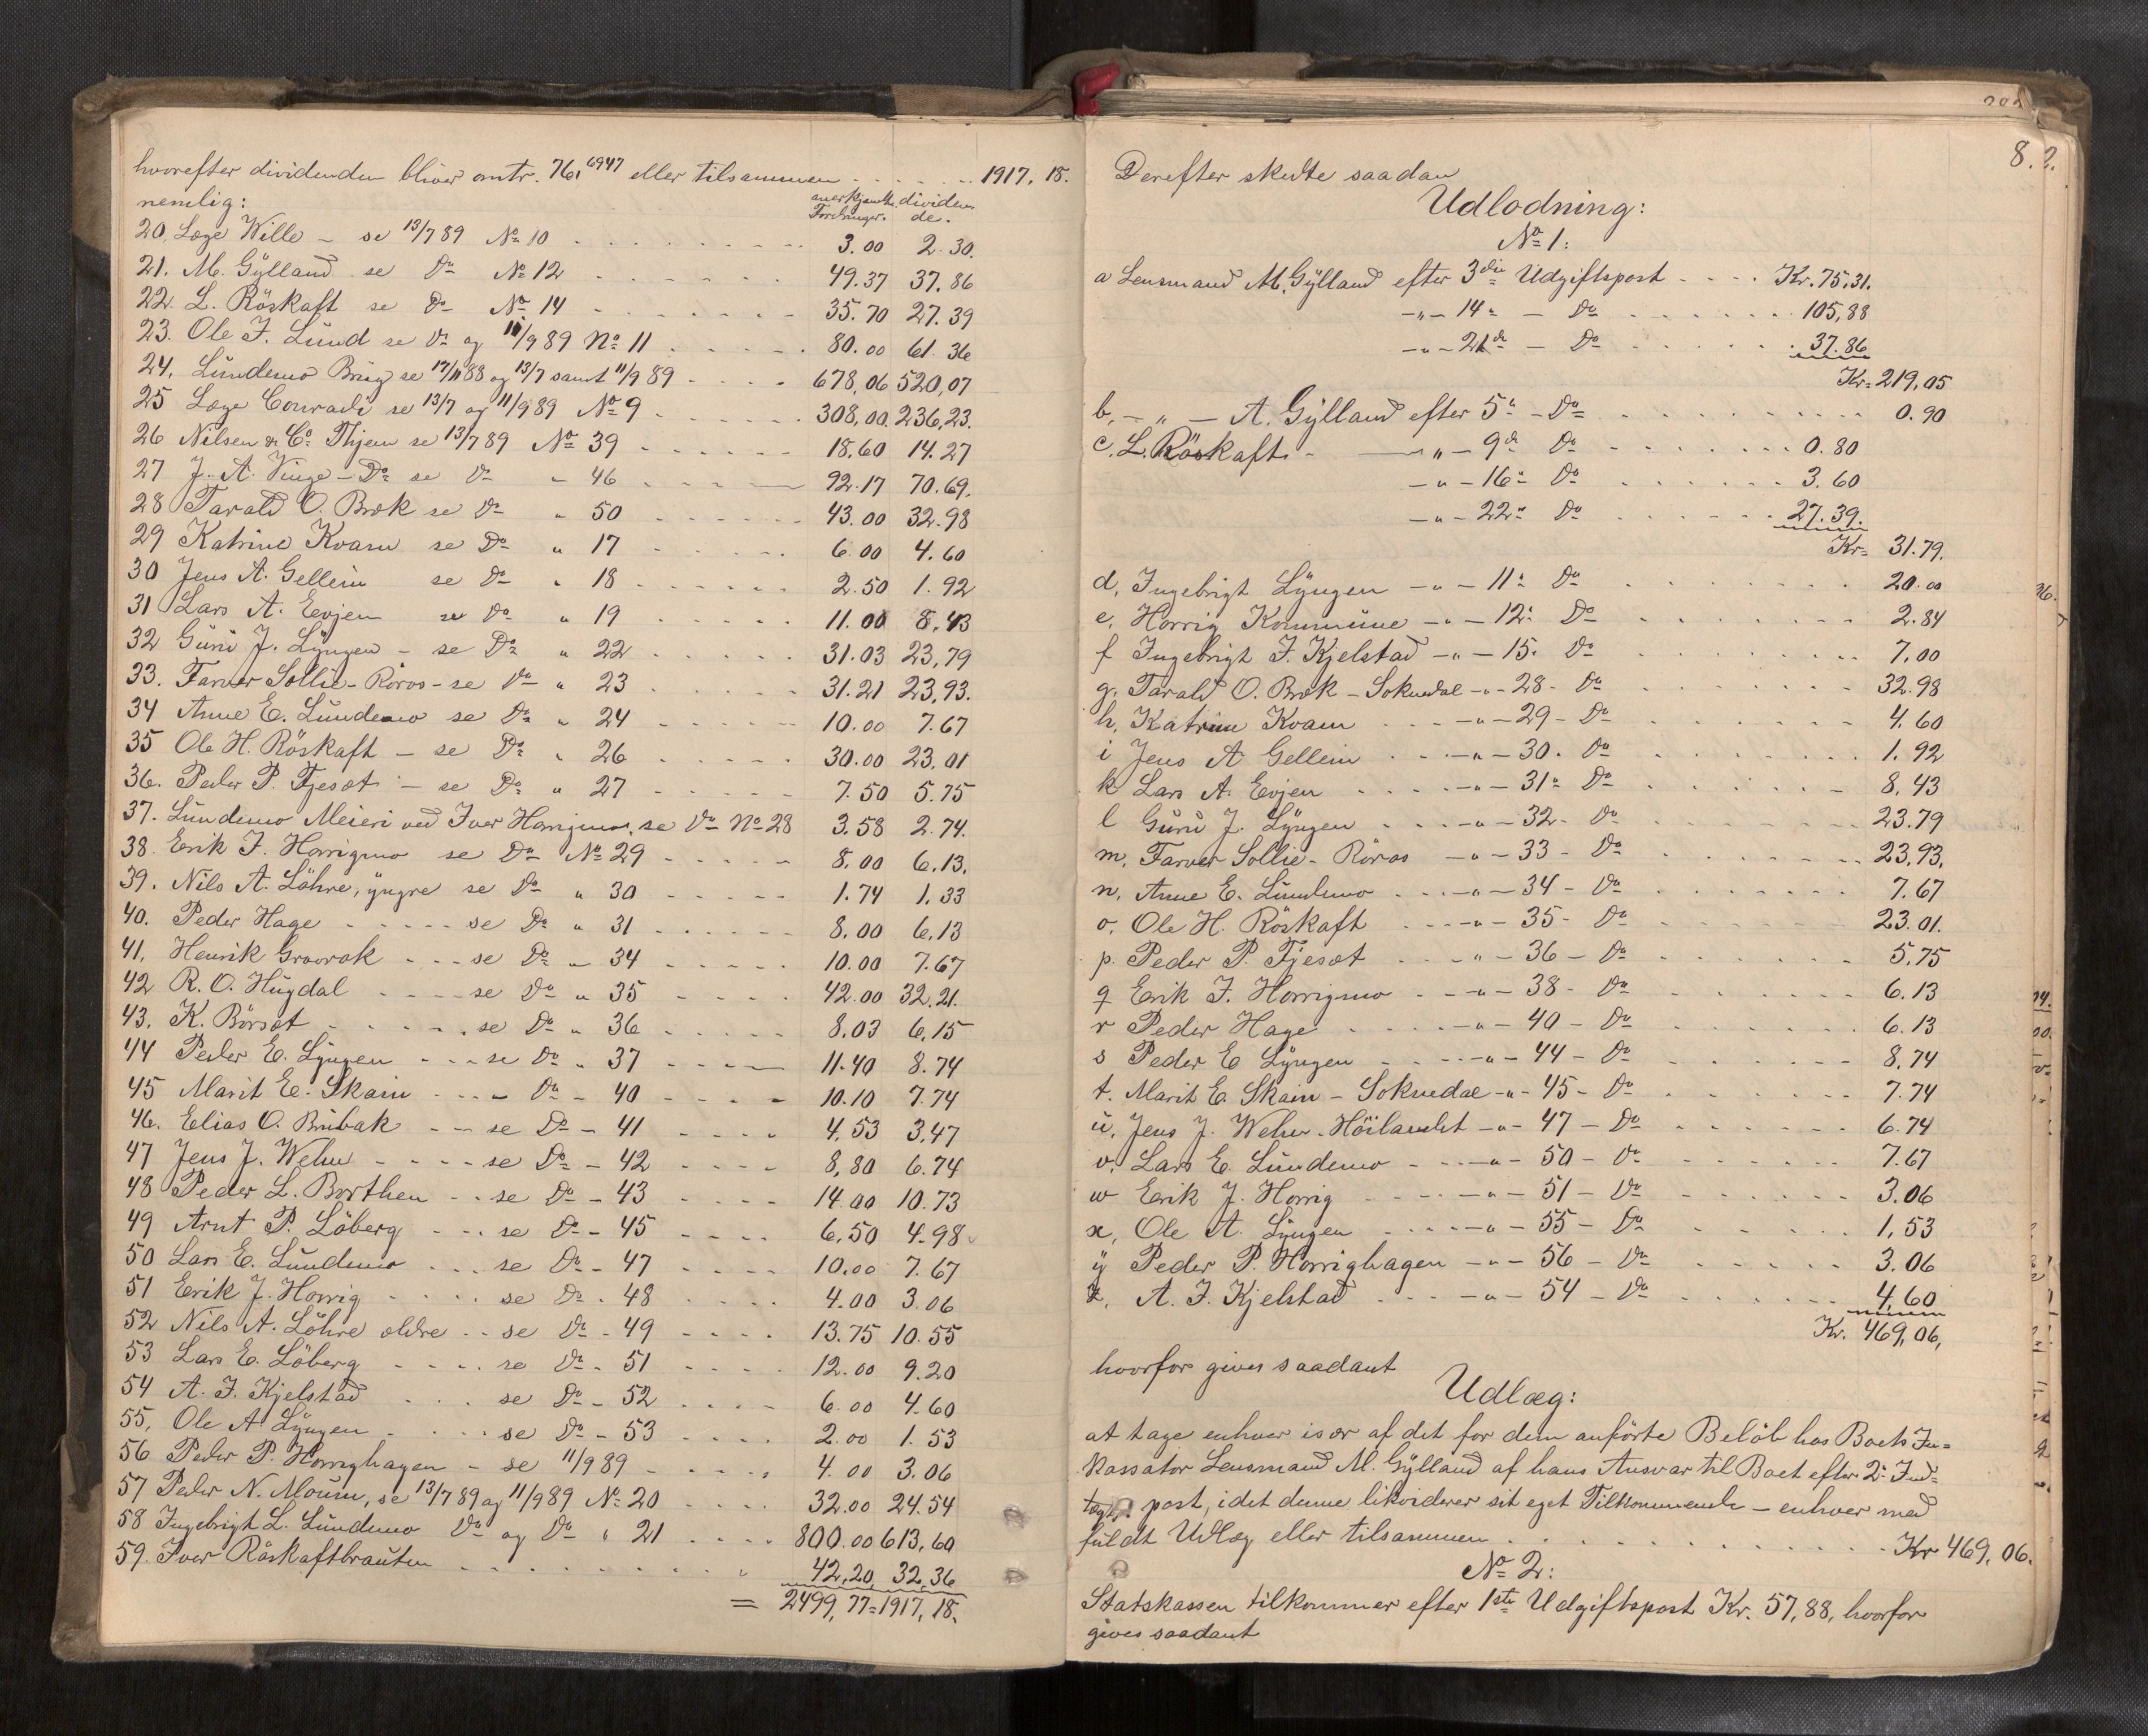 hvorefter dividenden bliver omtr. 76,6947 eller tilsammen . . . . . . 1917,18.
nemlig: anerkjendte Fordringer. dividende.
20. Læge Wille – se 13/7 89 No 10 . . . . 3.00 2.30.
21. M. Gylland se Do No 12 . . . . 49.37 37.86
22. L. Röskaft se Do No 14 . . . . 35.70 27.39
23. Ole J. Lund se Do og 11/9 89 No 11 . . . . 80.00 61.36
24. Lundemo Brug se 17/11 88 og 13/7 samt 11/9 89 . . . . 678,06 520,07
25 Læge Conradi se 13/7 og 11/9 89 No 9 . . . . 308,00. 236,23.
26 Nilsen & Co Thjem se 13/7 89 No 39 . . . . 18.60 14.27
27 J. A. Vinge – Do se Do – 46 . . . . 92.17 70.69.
28 Tarald O. Bræk se Do „ 50 . . . . 43.00 32.98
29 Katrine Kvam se Do „ 17 . . . . 6.00 4.60
30 Jens A. Gellein se Do „ 18 . . . . 2.50 1.92
31 Lars A. Evjen se Do „ 19 . . . . 11.00 8,43
32 Guru J. Lyngen – se Do „ 22 . . . . 31.03 23,79
33. Farver Sollie – Röros – se Do „ 23 . . . . 31.21 23,93.
34 Anne E. Lundemo se Do „ 24 . . . . 10.00 7.67
35 Ole H. Röskaft – se Do „ 26 . . . . 30.00 23,01
36. Peder P. Fjesæt – se Do „ 27 . . . . 7.50 5.75
37. Lundemo Meieri ved Iver Horrigmo, se Do No 28 3.58 2.74.
38. Erik J. Horrigmo se Do No 29 . . . . 8.00 6.13.
39. Nils A. Löhre, yngre se Do „ 30 . . . . 1.74 1.33
40. Peder Hage . . . . se Do „ 31 . . . . 8.00 6.13
41. Henrik Gravrok . . . se Do „ 34 . . . . 10.00 7.67
42 R. O. Hugdal . . . . se Do „ 35 . . . . 42.00 32.21.
43. K. Börsæt . . . . se Do „ 36 . . . . 8.03 6,15
44 Peder E. Lyngen . . . se Do „ 37 . . . . 11.40 8.74
45 Marit E. Skain . . . – Do – 40 . . . . 10.10 7.74
46. Elias O. Brubak . . . se Do – 41 . . . . 4.53 3.47
47 Jens J. Wehn . . . . se Do – 42 . . . . 8,80 6.74
48 Peder L. Borthen . . se Do – 43 . . . . 14.00 10.73
49 Arnt P. Löberg . . . se Do – 45 . . . . 6,50 4.98
50 Lars E. Lundemo . . . se Do – 47 . . . . 10.00 7.67
51 Erik J. Horrig . . . . se Do . 48 . . . . 4.00 3.06
52 Nils A. Löhre ældre . . se Do – 49 . . . . 13.75 10.55
53 Lars E. Löberg . . . . se Do . 51 . . . . 12.00 9.20
54 A. J. Kjelstad . . . se Do – 52 . . . . 6.00 4.60
55, Ole A Lyngen . . . . se Do – 53 . . . . 2.00 1.53
56 Peder P. Horrighagen – se 11/9 89 . . . . 4.00 3.06
57 Peder N. Moum, se 13/7 89 og 11/9 89 No 20 . . . . 32.00 24.54
58 Ingebrigt L. Lundemo Do og Do „ 21 . . . . 800.00 613,60
59. Iver Röskaftbrauten . . . . 42,20, 32,36
= 2499,77 = 1917,18.
8.
Derefter skedte saadan
Udlodning:
No 1:
a Lensmand M. Gylland efter 3die Udgiftspost . . . . Kr. 75,31.
– „ – 14 – Do . . . . 105,88
– „ – 21de – Do . . . . 37.86
Kr. 219,05
b, – „ – A. Gylland efter 5 – Do . . . . 0.90
c. L. Röskaft – – „ – 9de Do . . . . 0.80
– „ – 16 Do . . . . 3.60
– „ – 22 Do . . . . 27.39.
Kr. 31.79.
d, Ingebrigt Lyngen – „ – 11 Do . . . . 20.00
e, Horrig Kommune – „ – 12 Do . . . . 2.84
f Ingebrigt J. Kjelstad – „ – 15. Do . . . . 7,00
g. Tarald O. Bræk – Soknedal – „ – 28 – Do . . . . 32.98
h, Katrine Kvam . . . – „ – 29 – Do . . . . 4.60
i Jens A Gellein . . . – „ – 30. Do . . . . 1.92
k Lars A. Evjen . . . . – „ – 31 Do . . . . 8,43
l Guru J. Lyngen . . . – „ – 32 – Do . . . . 23.79
m, Farver Sollie – Röros – „ – 33 – Do . . . . 23,93,
n, Anne E. Lundemo . . . – „ – 34 – Do . . . . 7.67
o, Ole H. Röskaft . . . – „ – 35 – Do . . . . 23.01.
p. Peder P. Fjesæt . . . – „ – 36 – Do . . . . 5,75
q Erik J. Horrigmo . . – „ – 38 – Do . . . . 6.13
r Peder Hage . . . . – „ – 40 – Do . . . . 6.13
s Peder E Lyngen . . . – „ – 44 – Do . . . . 8,74
t. Marit E. Skain – Soknedal – „ – 45 – Do . . . . 7.74
u. Jens J. Wehn – Höilandet – „ – 47 – Do . . . . 6.74
v. Lars E. Lundemo . . . – „ – 50 – Do . . . . 7.67
w Erik J. Horrig . . . . – „ – 51 – Do . . . . 3.06
x, Ole A. Lyngen . . . . – „ – 55 – Do . . . . 1,53
y Peder P. Horrighagen – „ – 56 – Do . . . . 3.06
z, A. J. Kjelstad . . . – „ – 54 – Do . . . . 4,60
Kr. 469,06,
hvorfor gives saadant
Udlæg:
at tage enhver især af det for dem anförte Belöb hos Boets In-
kassator Lensmand M. Gylland af hans Ansvar til Boet efter 2 Ind-
tægts post, idet denne likviderer sit eget Tilkommende – enhver med
fuldt Udlæg eller tilsammen . . . . Kr 469,06.
No 2:
Statskassen tilkommer efter 1ste Udgiftspost Kr. 57,88, hvorfor
gives saadant